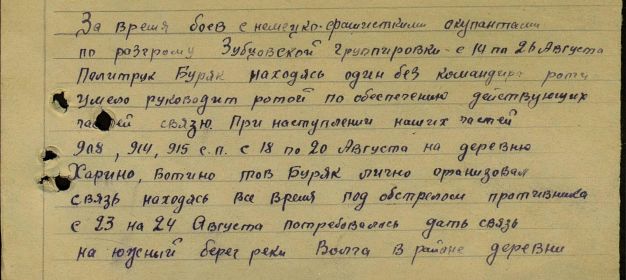 За время боев с немецко-фашистскими окупантами
по разгрому Зубцовской группировки с 14 по 26 Августа
Политрук Буряк находясь один без командира роты
умело руководит ротой по обеспечению действующих
частей связю. При наступлении наших частей
908, 914, 915 с.п. с 18 по 20 Августа на деревню
Харино, Вотино тов Буряк лично организовал
связь находясь все время под обстрелом противника
с 23 на 24 Августа потребовалось дать связь
на южный берег реки Волга в районе деревни